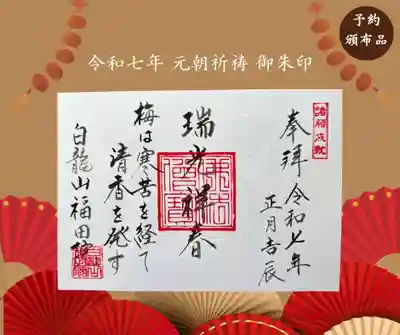 予約
頒布品
令和七年 元朝祈祷 御朱印
諸願成就
奉拝 令和七年
正月吉辰
瑞光祥春
佛法僧寶
梅は寒苦を経て
清香を発す
白龍山福田院